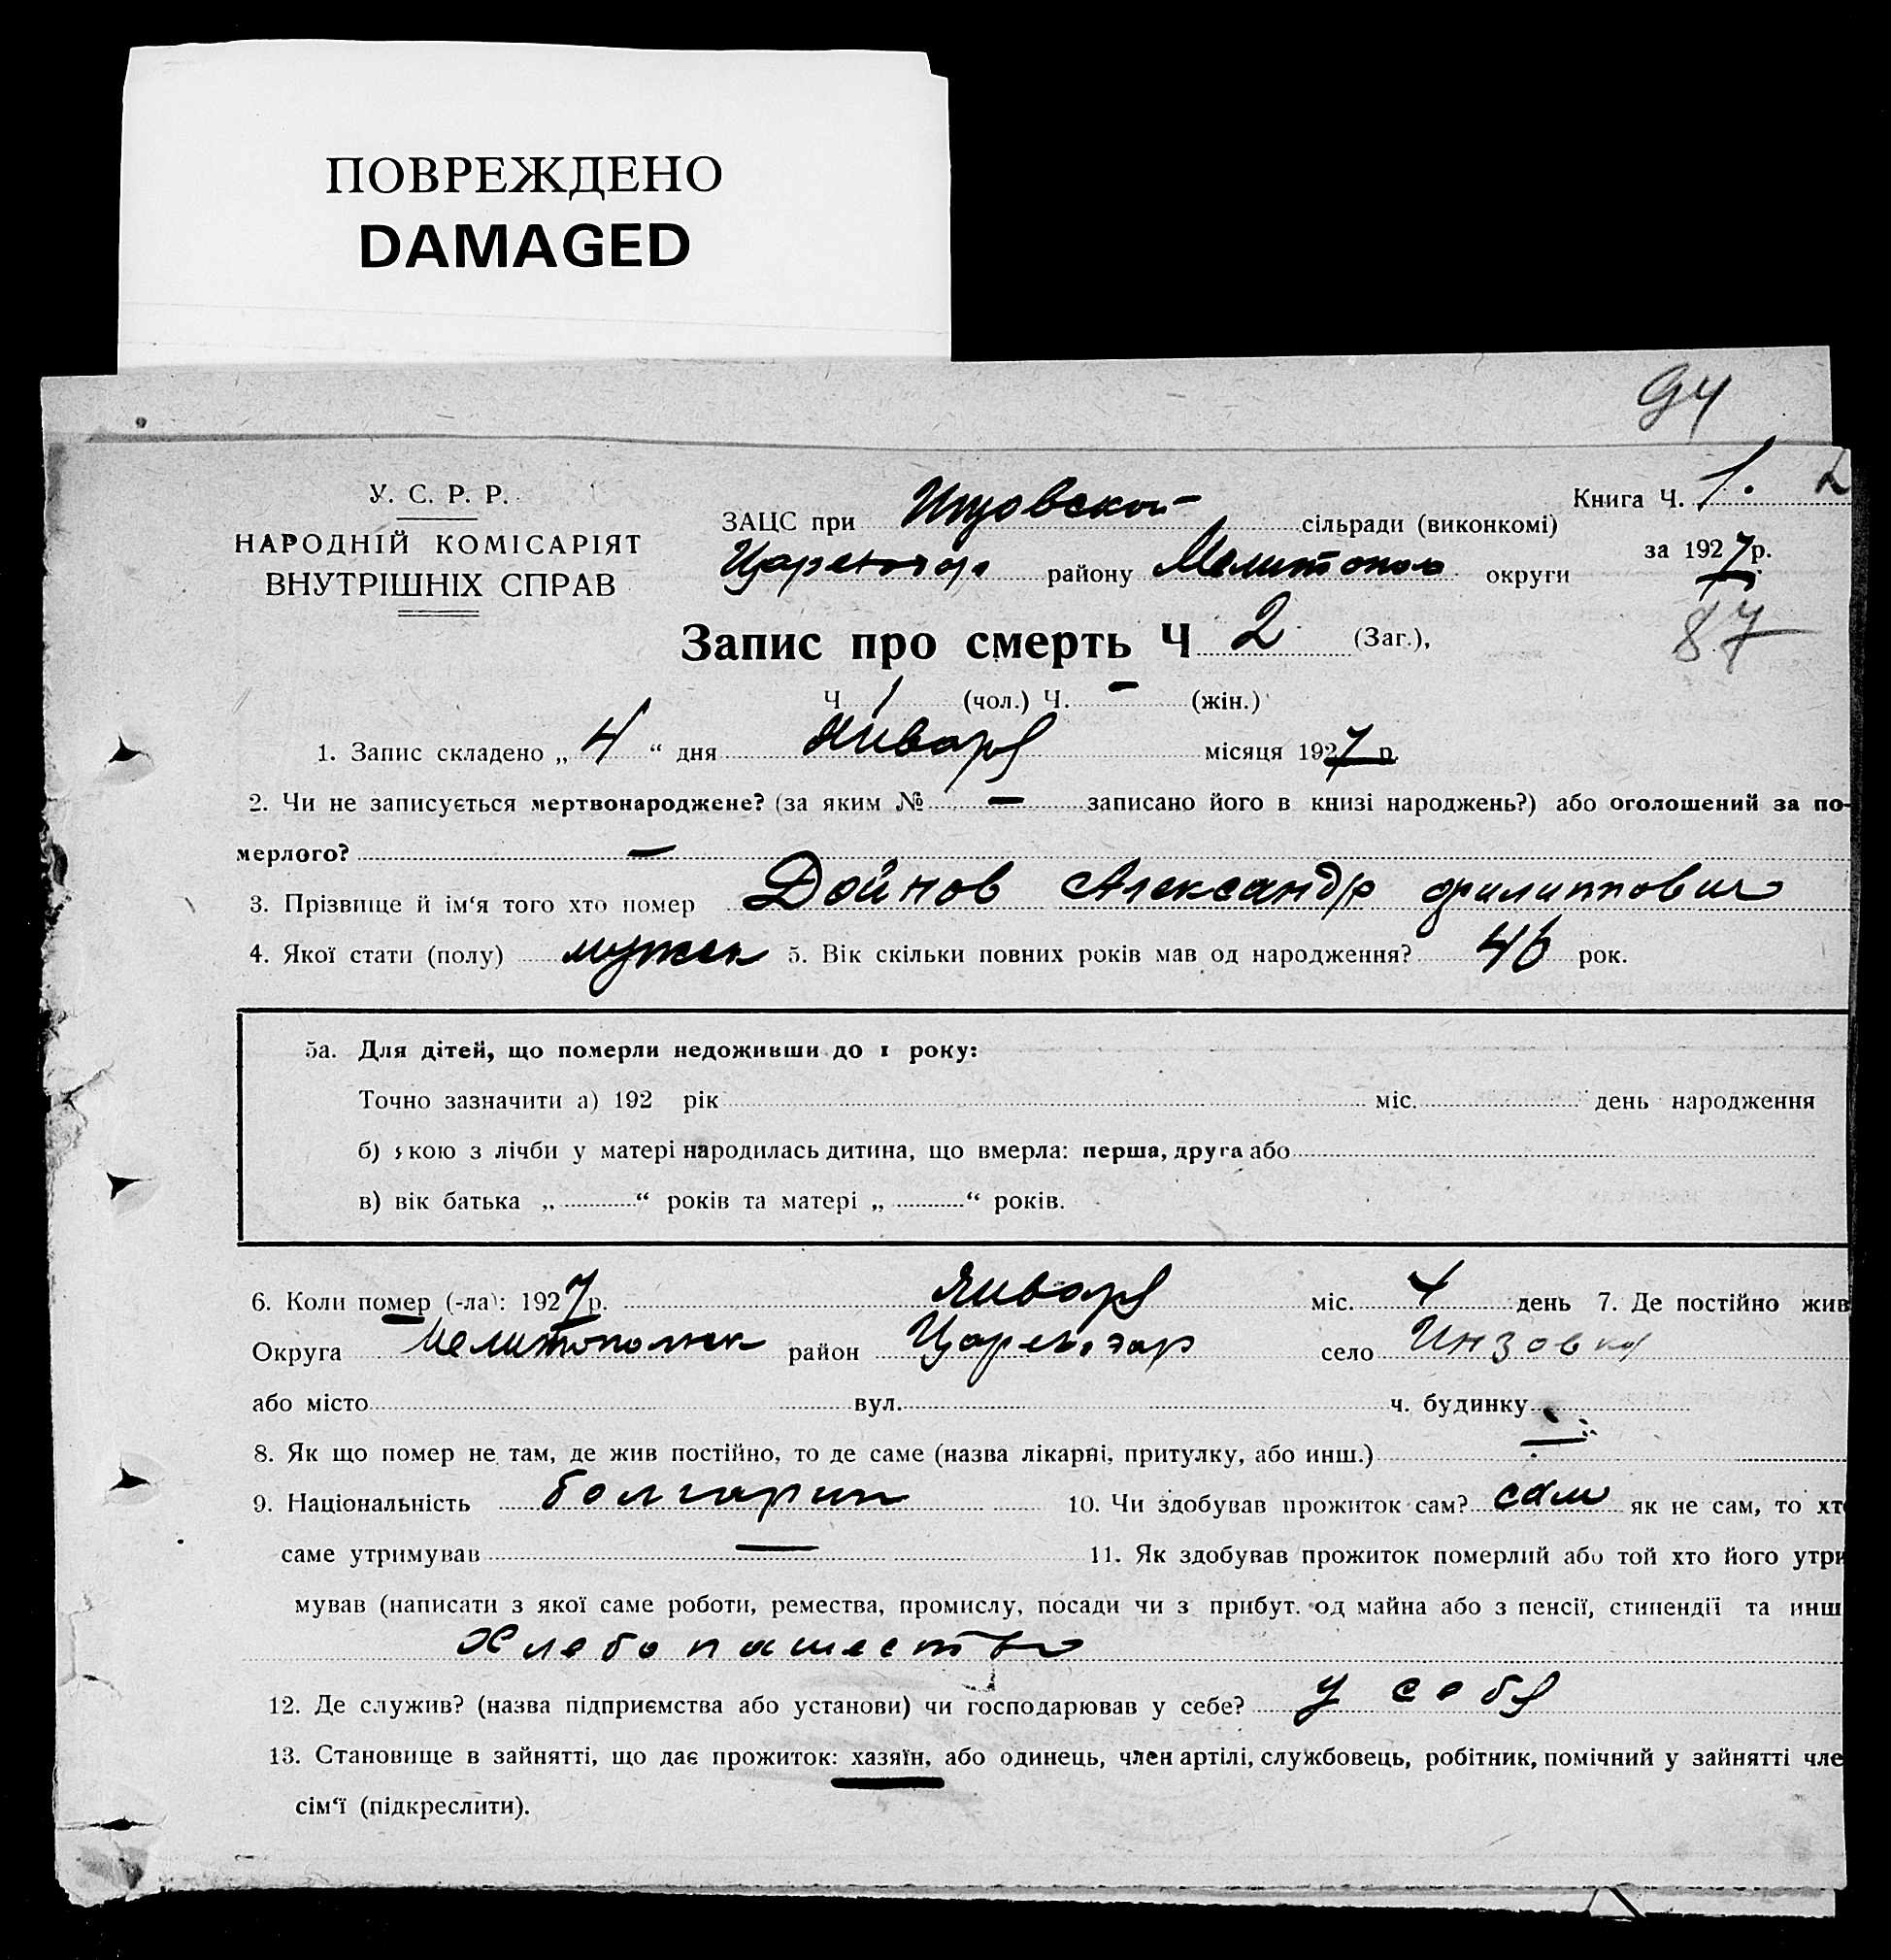 ПОВРЕЖДЕНО
DAMAGED
94
У. С. Р. Р.
НАРОДНІЙ КОМІСАРІЯТ
ВНУТРІШНІХ СПРАВ
Книга Ч. 1. 2
ЗАЦС при сільради (виконкомі)
за 1927 р.
району Мелитополь округи
87
Запис про смерть Ч 2 (Заг.),
Ч 1 (чол.) Ч. — (жін.)
1. Запис складено „ 4 “ дня Января місяця 1927 р.
2. Чи не записується мертвонароджене? (за яким № — записано його в книзі народжень?) або оголошений за по-
мерлого? —
3. Прізвище й ім‘я того хто помер Дойнов Александр Филиппович
4. Якої стати (полу) мужск 5. Вік скільки повних років мав од народження? 46 рок.
5а. Для дітей, що померли недоживши до 1 року:
Точно зазначити а) 192 рік міс. день народження
б) якою з лічби у матері народилась дитина, що вмерла: перша, друга або
в) вік батька „ “ років та матері „ “ років.
6. Коли помер (-ла): 1927 р. Января міс. 4 день 7. Де постійно жив
Округа Мелитопольск район Царевозар село Инзовка
або місто вул. ч. будинку
8. Як що помер не там, де жив постійно, то де саме (назва лікарні, притулку, або инш.) —
9. Національність болгарин 10. Чи здобував прожиток сам? сам як не сам, то хто
саме утримував — 11. Як здобував прожиток померлий або той хто його утри
мував (написати з якої саме роботи, ремества, промислу, посади чи з прибут. од майна або з пенсії, стипендії та инш
Хлебопашество
12. Де служив? (назва підприємства або установи) чи господарював у себе? у себя
13. Становище в зайнятті, що дає прожиток: хазяїн, або одинець, член артілі, службовець, робітник, помічний у зайнятті чле
сім‘ї (підкреслити).